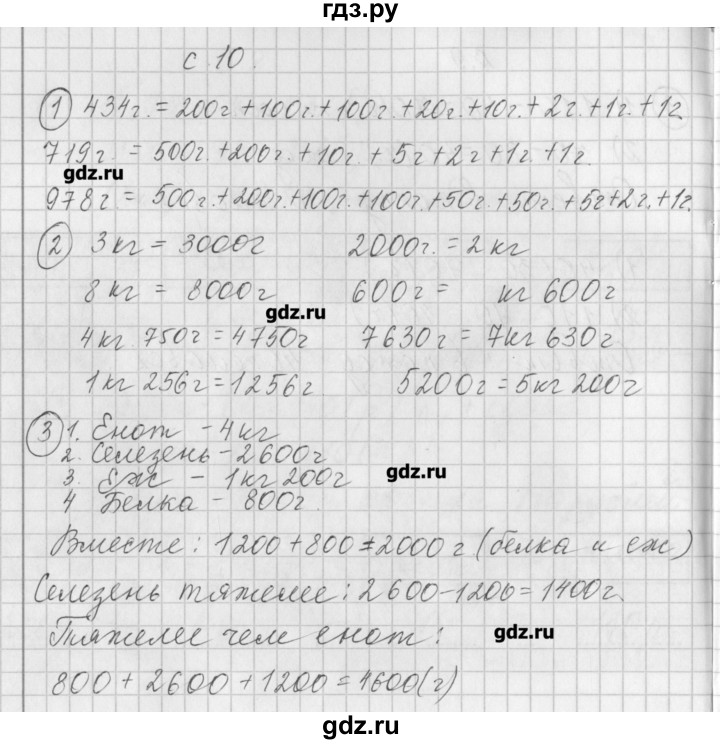 гдз.ру
с 10.
① 434г. = 200г + 100г. + 100г. + 20г. + 10г. + 2г. + 1г. + 1г.
719г. = 500г. + 200г. + 10г. + 5г + 2г + 1г. + 1г.
gdz.ru
978г = 500г. + 200г. + 100г. + 100г. + 50г. + 50г. + 5г + 2г. + 1г.
② 3кг = 3000г 2000г. = 2кг
8кг = 8000г 600г = кг 600г
gdz.ru
4кг 750г = 4750г 7630г = 7кг 630г
1кг 256г = 1256г 5200г = 5кг 200г
③ 1. Енот - 4кг
2. Селезень - 2600г
3. Еж - 1кг 200г
gdz.ru
4 Белка - 800г.
Вместе: 1200 + 800 = 2000г (белка и еж)
Селезень тяжелее: 2600 - 1200 = 1400г.
Тяжелее чем енот:
gdz.ru
800 + 2600 + 1200 = 4600(г)
gdz.ru